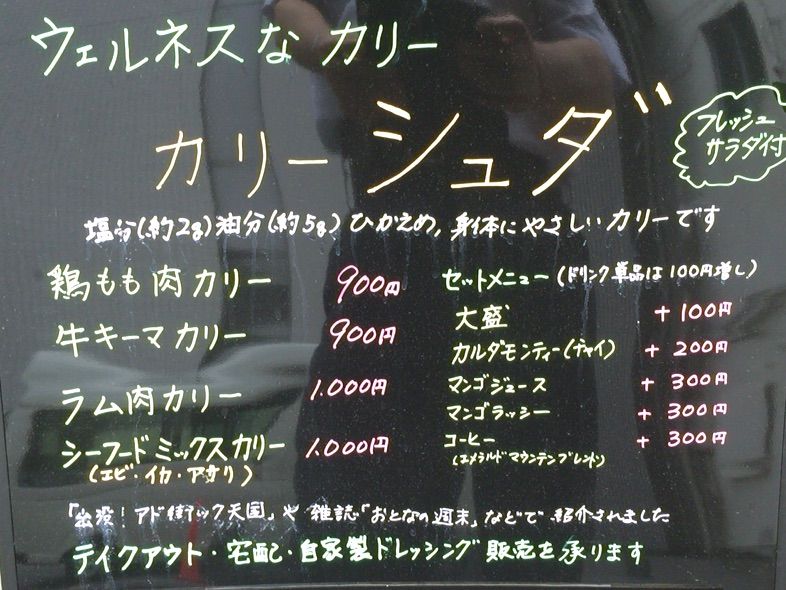 ウェルネスな カリー
カリー シュダ
フレッシュ
サラダ付
塩分(約2g)油分(約5g)ひかえめ,身体にやさしいカリーです
鶏もも肉カリー 900円
牛キーマカリー 900円
ラム肉カリー 1.000円
シーフードミックスカリー 1.000円
(エビ・イカ・アサリ)
セットメニュー(ドリンク単品は100円増し)
大盛 +100円
カルダモンティー(チャイ) +200円
マンゴジュース +300円
マンゴラッシー +300円
コーヒー +300円
(エメラルドマウンテンブレンド)
「出没!アド街ック天国」や 雑誌「おとなの週末」などで紹介されました
テイクアウト・宅配・自家製ドレッシング販売を承ります